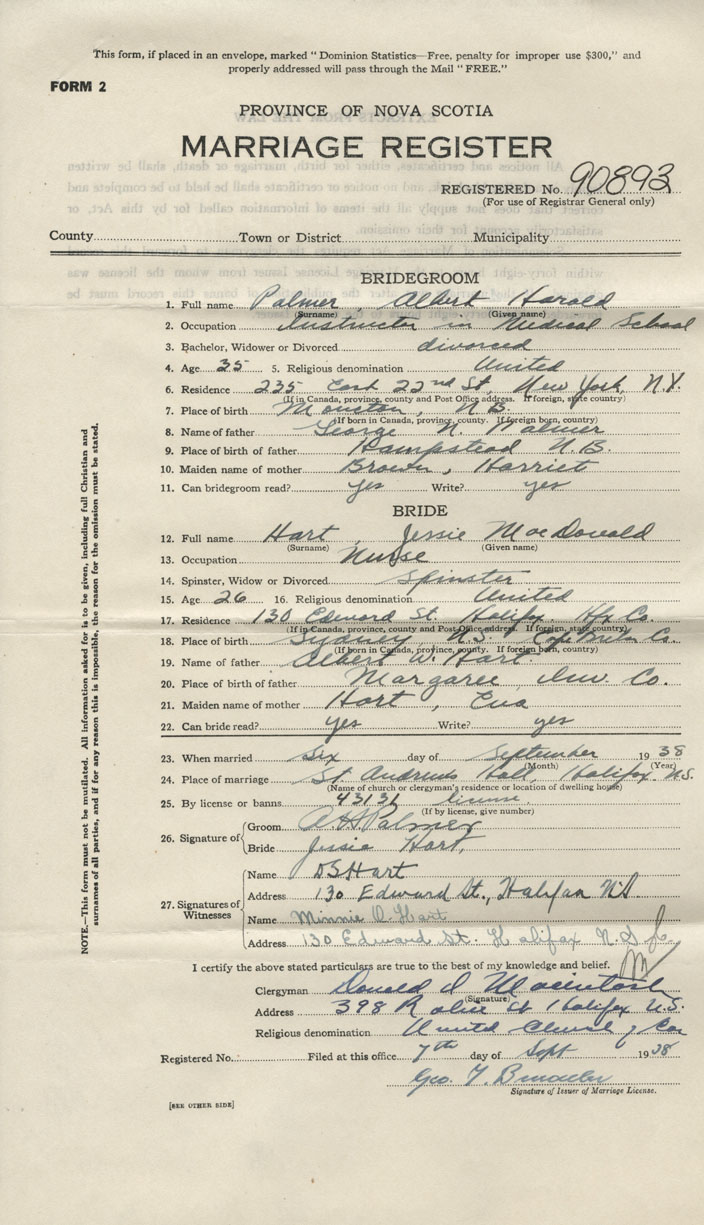 This form, if placed in an envelope, marked "Dominion Statistics—Free, penalty for improper use $300," and
properly addressed will pass through the Mail "FREE."
FORM 2
PROVINCE OF NOVA SCOTIA
MARRIAGE REGISTER
REGISTERED No. 90893
(For use of Registrar General only)
County Town or District Municipality
BRIDEGROOM
1. Full name Palmer, Albert Harold
(Surname) (Given name)
2. Occupation Instructor in Medical School
3. Bachelor, Widower or Divorced divorced
4. Age 35 5. Religious denomination United
6. Residence 235 East 22nd St, New York, N.Y.
(If in Canada, province, county and Post Office address. If foreign, state country)
7. Place of birth Moncton, N.B.
(If born in Canada, province, county. If foreign born, country)
8. Name of father George N. Palmer
9. Place of birth of father Hampstead N.B.
10. Maiden name of mother Brown, Harriet
11. Can bridegroom read? yes Write? yes
BRIDE
12. Full name Hart, Jessie MacDonald
(Surname) (Given name)
13. Occupation Nurse
14. Spinster, Widow or Divorced Spinster
15. Age 26 16. Religious denomination United
17. Residence 130 Edward St. Halifax. Hfx Co.
(If in Canada, province, county and Post Office address. If foreign, state country)
18. Place of birth Sydney, N.S. Cape Breton Co.
(If born in Canada, province, county. If foreign born, country)
19. Name of father Albert W. Hart.
20. Place of birth of father Margaree, Inv. Co.
21. Maiden name of mother Hart, Eva
22. Can bride read? yes Write? yes
23. When married Six day of September 1938
(Month) (Year)
24. Place of marriage St Andrews Hall, Halifax N.S.
(Name of church or clergyman's residence or location of dwelling house)
25. By license or banns 43131 license.
(If by license, give number)
26. Signature of
Groom A H Palmer
Bride Jessie Hart.
27. Signatures of Witnesses
Name D S Hart
Address 130 Edward St., Halifax N.S.
Name Minnie O. Hart
Address 130 Edward St. Halifax N.S.
I certify the above stated particulars are true to the best of my knowledge and belief.
Clergyman Donald
(Signature)
Address 398 St Halifax N.S.
Religious denomination United Church of Can
Registered No. Filed at this office 7th day of Sept 1938
Geo. F.
Signature of Issuer of Marriage License.
[SEE OTHER SIDE]
NOTE.—This form must not be mutilated. All information asked for is to be given, including full Christian and
surnames of all parties, and if for any reason this is impossible, the reason for the omission must be stated.